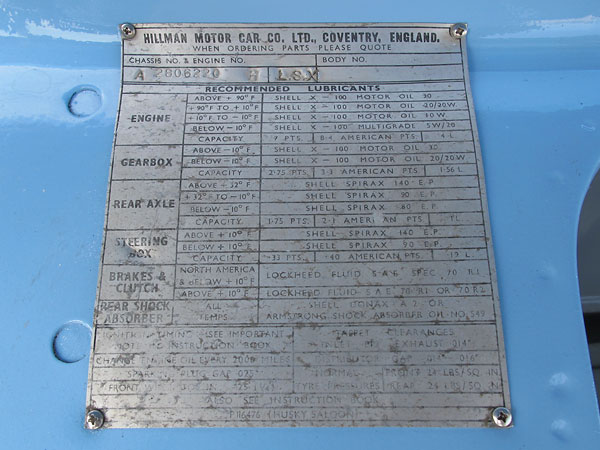 HILLMAN MOTOR CAR CO. LTD., COVENTRY, ENGLAND.
WHEN ORDERING PARTS PLEASE QUOTE
CHASSIS NO. & ENGINE NO. BODY NO.
A 2806220 H LSX
RECOMMENDED LUBRICANTS
ENGINE
ABOVE +90°F SHELL X-100 MOTOR OIL 30
+90°F TO +10°F SHELL X-100 MOTOR OIL 20/20W
+10°F TO -10°F SHELL X-100 MOTOR OIL 10W
BELOW -10°F SHELL X-100 MULTIGRADE 5W/20
CAPACITY 7 PTS 8.4 AMERICAN PTS 4 L
GEARBOX
ABOVE -10°F SHELL X-100 MOTOR OIL 30
BELOW -10°F SHELL X-100 MOTOR OIL 20/20W
CAPACITY 2.75 PTS 3.3 AMERICAN PTS 1.56 L
REAR AXLE
ABOVE +32°F SHELL SPIRAX 140 E.P.
+32°F TO -10°F SHELL SPIRAX 90 E.P.
BELOW -10°F SHELL SPIRAX 80 E.P.
CAPACITY 1.75 PTS 2.1 AMERICAN PTS
STEERING BOX
ABOVE +10°F SHELL SPIRAX 140 E.P.
BELOW +10°F SHELL SPIRAX 90 E.P.
CAPACITY .33 PTS .40 AMERICAN PTS .19 L
BRAKES & CLUTCH
NORTH AMERICA & BELOW +10°F LOCKHEED FLUID S.A.E. SPEC. 70 R.1.
ABOVE +10°F LOCKHEED FLUID S.A.E. 70 R.1. OR 70 R.2.
REAR SHOCK ABSORBER
ALL TEMPS. SHELL DONAX A.2. OR
ARMSTRONG SHOCK ABSORBER OIL NO. 549
TIMING SEE IMPORTANT TAPPET CLEARANCES
INSTRUCTION BOOK EXHAUST .014"
CHANGE ENGINE OIL EVERY 2000 MILES DISTRIBUTOR GAP .014" .016"
PLUG GAP .025" NORMAL FRONT LBS/SQ IN
FRONT TYRE PRESSURES REAR 24 LBS/SQ IN
ALSO SEE INSTRUCTION BOOK
(HUSKY SALOON)